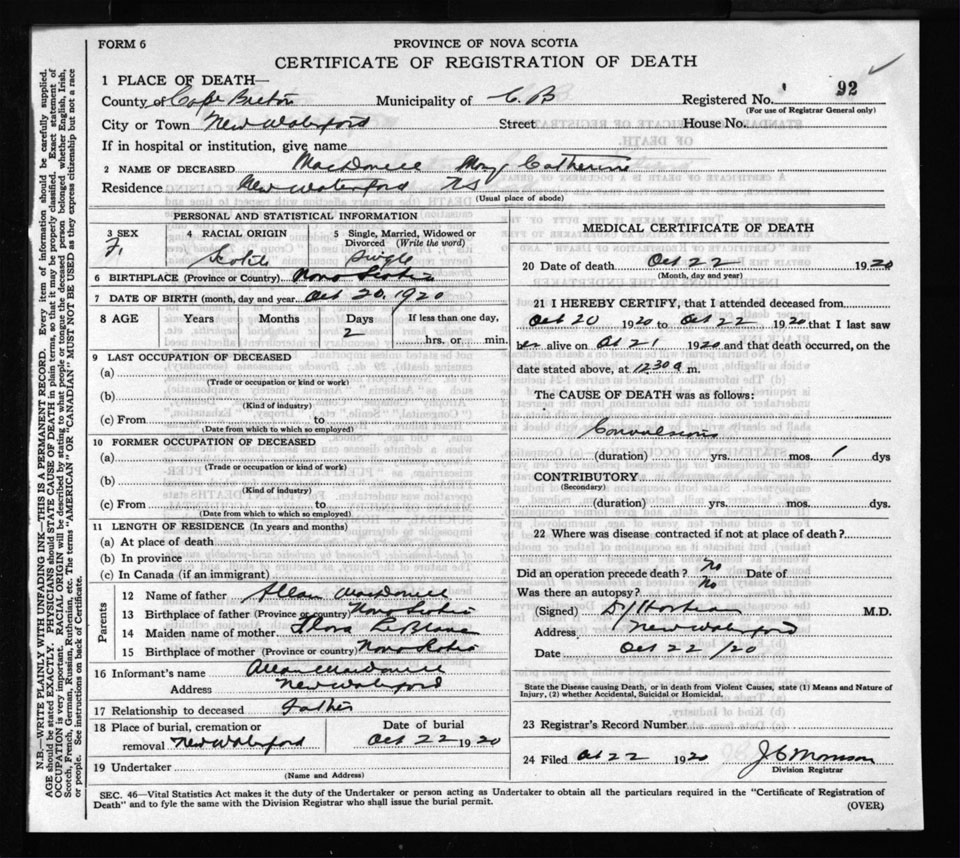 FORM 6
PROVINCE OF NOVA SCOTIA
CERTIFICATE OF REGISTRATION OF DEATH
1 PLACE OF DEATH—
County of Cape Breton Municipality of C. B Registered No. 92
(For use of Registrar General only)
City or Town New Waterford Street House No.
If in hospital or institution, give name
2 NAME OF DECEASED MacDonell Mary Catherine
Residence New Waterford NS
(Usual place of abode)
PERSONAL AND STATISTICAL INFORMATION
3 SEX 4 RACIAL ORIGIN 5 Single, Married, Widowed or Divorced (Write the word)
F. Scotch Single
6 BIRTHPLACE (Province or Country) Nova Scotia
7 DATE OF BIRTH (month, day and year) Oct 20, 1920
8 AGE Years Months Days If less than one day,
2 hrs. or min.
9 LAST OCCUPATION OF DECEASED
(a)
(Trade or occupation or kind or work)
(b)
(Kind of industry)
(c) From to
(Date from which to which so employed)
10 FORMER OCCUPATION OF DECEASED
(a)
(Trade or occupation or kind of work)
(b)
(Kind of industry)
(c) From to
(Date from which to which so employed)
11 LENGTH OF RESIDENCE (In years and months)
(a) At place of death
(b) In province
(c) In Canada (if an immigrant)
Parents
12 Name of father Allan MacDonell
13 Birthplace of father (Province or country) Nova Scotia
14 Maiden name of mother Flora LeBlanc
15 Birthplace of mother (Province or country) Nova Scotia
16 Informant's name Allan MacDonell
Address New Waterford
17 Relationship to deceased Father
18 Place of burial, cremation or Date of burial
removal New Waterford Oct 22 1920
19 Undertaker
(Name and Address)
MEDICAL CERTIFICATE OF DEATH
20 Date of death Oct 22 1920
(Month, day and year)
21 I HEREBY CERTIFY, that I attended deceased from
Oct 20 1920 to Oct 22 1920 that I last saw
her alive on Oct 21 1920 and that death occurred, on the
date stated above, at 12 30 a m.
The CAUSE OF DEATH was as follows:
Convulsions
(duration) yrs. mos. 1 dys
CONTRIBUTORY
(Secondary)
(duration) yrs. mos. dys.
22 Where was disease contracted if not at place of death?
Did an operation precede death? No Date of
Was there an autopsy? No
(Signed) M.D.
Address New Waterford
Date Oct 22 /20
State the Disease causing Death, or in death from Violent Causes, state (1) Means and Nature of
Injury, (2) whether Accidental, Suicidal or Homicidal.
23 Registrar's Record Number
24 Filed Oct 22 1920 J C Morrison
Division Registrar
SEC. 46—Vital Statistics Act makes it the duty of the Undertaker or person acting as Undertaker to obtain all the particulars required in the "Certificate of Registration of
Death" and to fyle the same with the Division Registrar who shall issue the burial permit.
(OVER)
N.B.—WRITE PLAINLY WITH UNFADING INK—THIS IS A PERMANENT RECORD. Every item of information should be carefully supplied.
AGE should be stated EXACTLY. PHYSICIANS should STATE CAUSE OF DEATH in plain terms, so that it may be properly classified. Exact statement of
OCCUPATION is very important. RACIAL ORIGIN will be described by stating to what people or tongue the deceased person belonged, whether English, Irish,
Scotch, French, German, Russian, Ruthenian, etc. The terms "AMERICAN" OR "CANADIAN" MUST NOT BE USED as they express citizenship but not a race
or people. See instructions on back of Certificate.